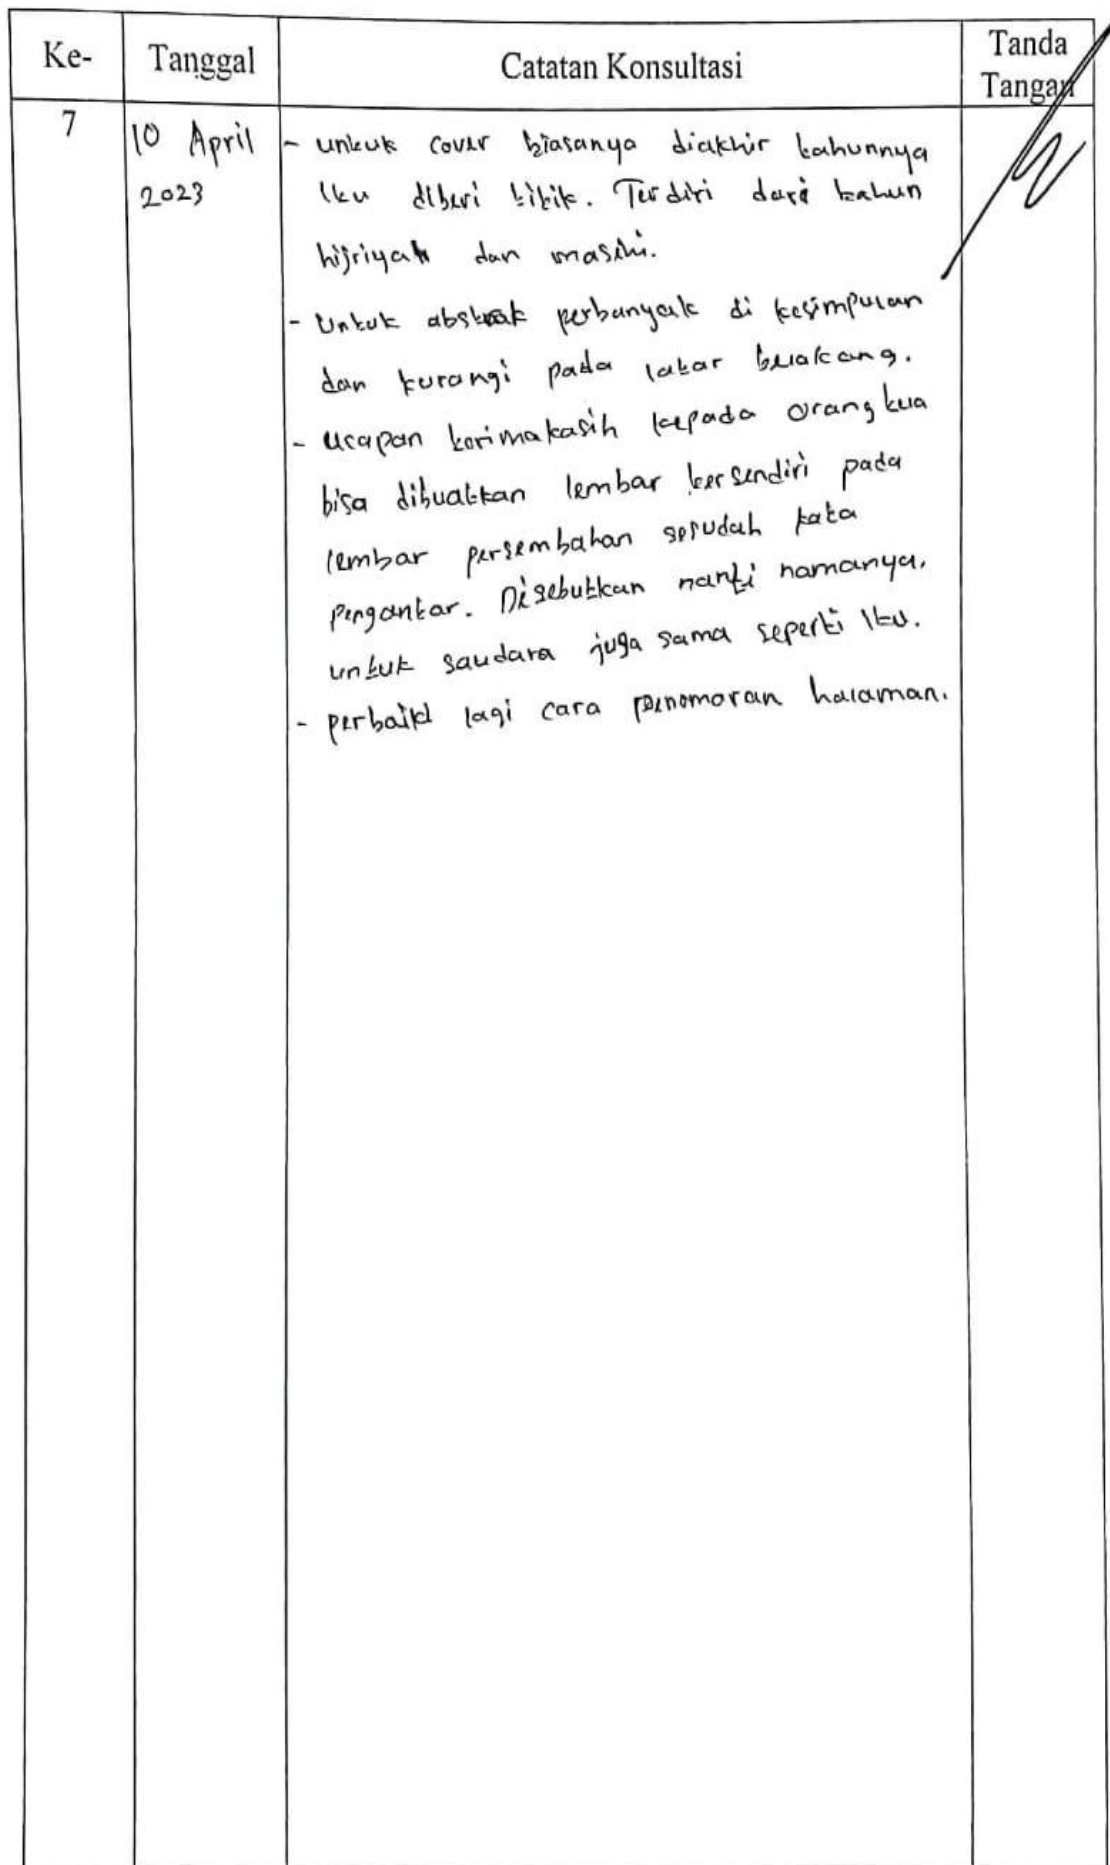 Ke-
Tanggal
Catatan Konsultasi
Tanda
Tangan
7
10 April
2023
- untuk cover biasanya diakhir tahunnya
itu diberi titik. Terdiri dari tahun
hijriyah dan masehi.
- Untuk abstrak perbanyak di kesimpulan
dan kurangi pada latar belakang.
- ucapan terimakasih kepada orang tua
bisa dibuatkan lembar tersendiri pada
lembar persembahan sesudah kata
pengantar. Disebutkan nanti namanya,
untuk saudara juga sama seperti itu.
- perbaiki lagi cara penomoran halaman.